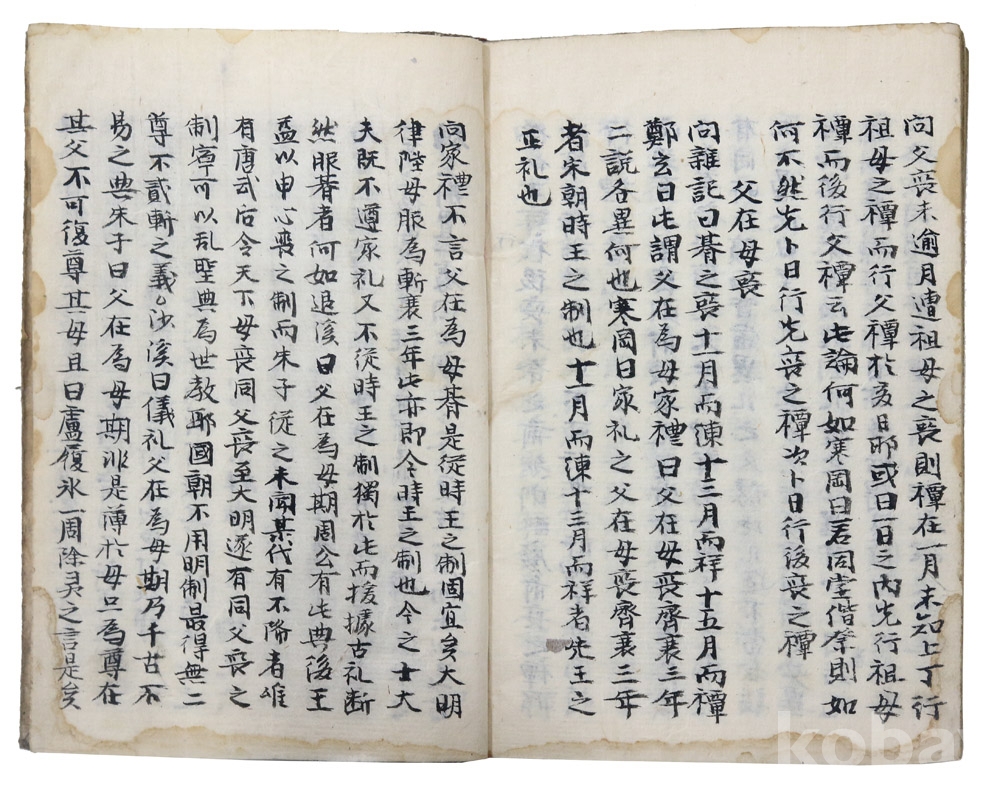 問父喪未逾月遭祖母之喪則禫在一月未知上丁行
祖母之禫而行父禫於亥日耶或曰一日之內先行祖母
禫而後行父禫云此論何如寒岡曰若同堂偕祭則如
何不然先卜日行先喪之禫次卜日行後喪之禫
父在母喪
問雜記曰朞之喪十一月而湅十三月而祥十五月而禫
鄭玄曰此謂父在為母家禮曰父在母喪齊衰三年
二說各異何也寒岡曰家礼之父在母喪齊衰三年
者宋朝時王之制也十一月而湅十三月而祥者先王之
正礼也
問家禮不言父在為母朞是從時王之制固宜矣大明
律陞母服為斬衰三年此亦即今時王之制也今之士大
夫既不遵家礼又不從時王之制獨於此而援據古礼断
然服朞者何如退溪曰父在為母期周公有此典後王
益以申心喪之制而朱子從之未聞某代有不降者雖
有唐武后令天下母喪同父喪至大明遂有同父喪之
制寧可以乱聖典為世教耶國朝不用明制最得無二
尊不貳斬之義沙溪曰儀礼父在為母期乃千古不
易之典朱子曰父在為母期非是薄於母只為尊在
其父不可復尊其母且曰盧履氷一周除灵之言是矣
koba